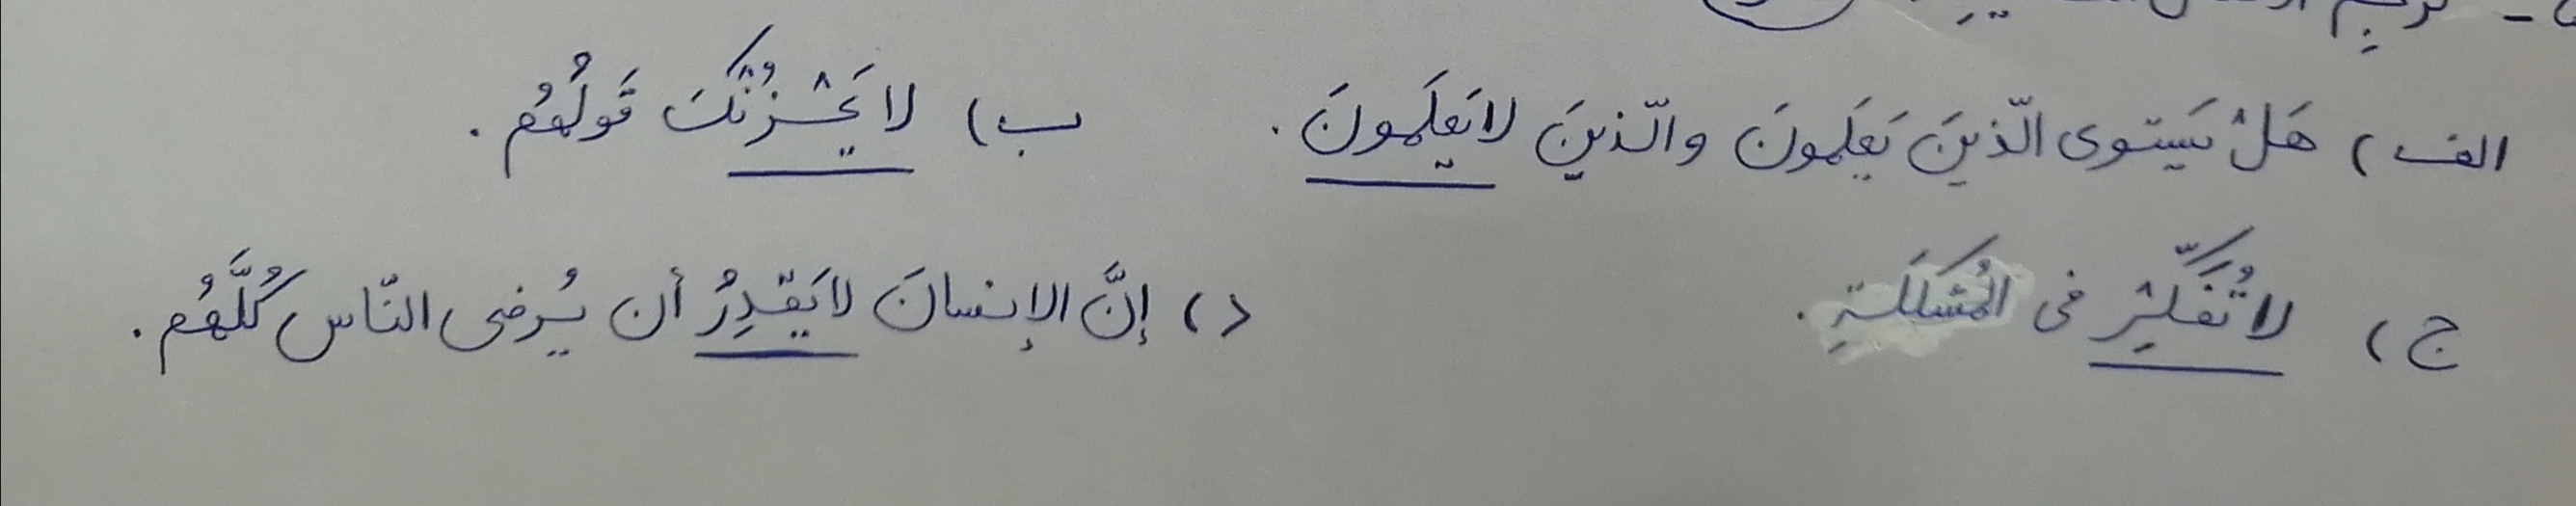 الف) هَلْ يَستوى الّذينَ يَعلَمونَ والّذينَ لايَعلَمونَ. ب) لا يَحْزُنْكَ قَولُهُم.
ج) لا تُفَكِّرْ فى المُشکلَةِ. د) إنَّ الإنسانَ لايَقْدِرُ أن يُرضى النّاس كُلَّهُم.